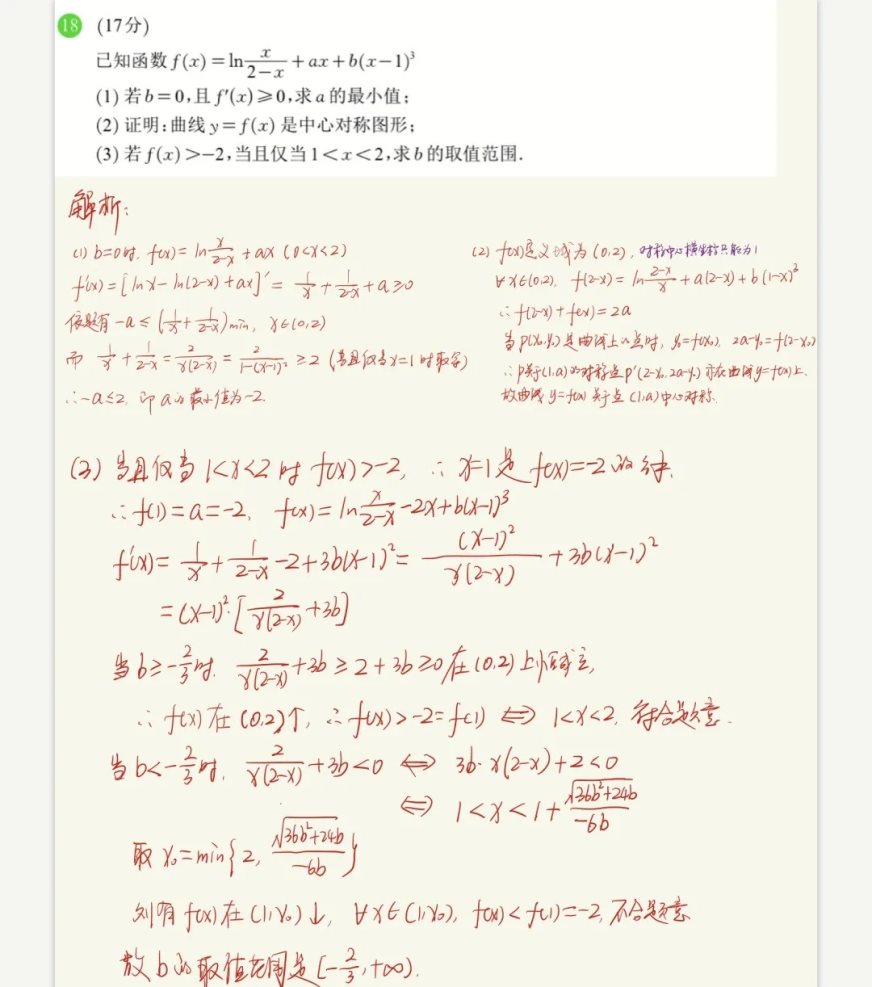 18 (17分)
已知函数 f(x)=ln x/(2-x)+ax+b(x-1)³
(1) 若b=0,且 f′(x)≥0,求a的最小值;
(2) 证明:曲线y=f(x)是中心对称图形;
(3) 若 f(x)>-2,当且仅当1<x<2,求b的取值范围.
解析:
(1) b=0时, f(x)= ln x/(2-x) +ax (0<x<2)
f′(x)=[lnx-ln(2-x)+ax]′= 1/x + 1/(2-x) +a≥0
依题有 -a≤(1/x+1/(2-x))min, x∈(0,2)
而 1/x + 1/(2-x) = 2/(x(2-x)) = 2/(1-(x-1)²) ≥2 (当且仅当x=1时取等)
∴-a≤2, 即a的最小值为-2.
(2) f(x)定义域为(0,2), 对称中心横坐标只能为1
∀x∈(0,2), f(2-x)= ln (2-x)/x +a(2-x)+b(1-x)³
∴f(2-x)+f(x)=2a
当P(x₀,y₀)是曲线上的点时, y₀=f(x₀), 2a-y₀=f(2-x₀)
∴P关于(1,a)的对称点P′(2-x₀,2a-y₀)亦在曲线y=f(x)上.
故曲线y=f(x)关于点(1,a)中心对称.
(3) 当且仅当1<x<2时 f(x)>-2, ∴x=1是f(x)=-2的解.
∴f(1)=a=-2, f(x)=ln x/(2-x) -2x+b(x-1)³
f′(x)= 1/x + 1/(2-x) -2+3b(x-1)²= (x-1)²/(x(2-x)) +3b(x-1)²
=(x-1)²·[2/(x(2-x))+3b]
当b≥-2/3时, 2/(x(2-x))+3b≥2+3b≥0在(0,2)上恒成立,
∴f(x)在(0,2)↑, ∴f(x)>-2=f(1) ⇔ 1<x<2, 符合题意.
当b<-2/3时, 2/(x(2-x))+3b<0 ⇔ 3b·x(2-x)+2<0
⇔ 1<x<1+√(36b²+24b)/(-6b)
取 x₀=min{2, √(36b²+24b)/(-6b)}
则有f(x)在(1,x₀)↓, ∀x∈(1,x₀), f(x)<f(1)=-2, 不合题意
故b的取值范围是[-2/3,+∞).